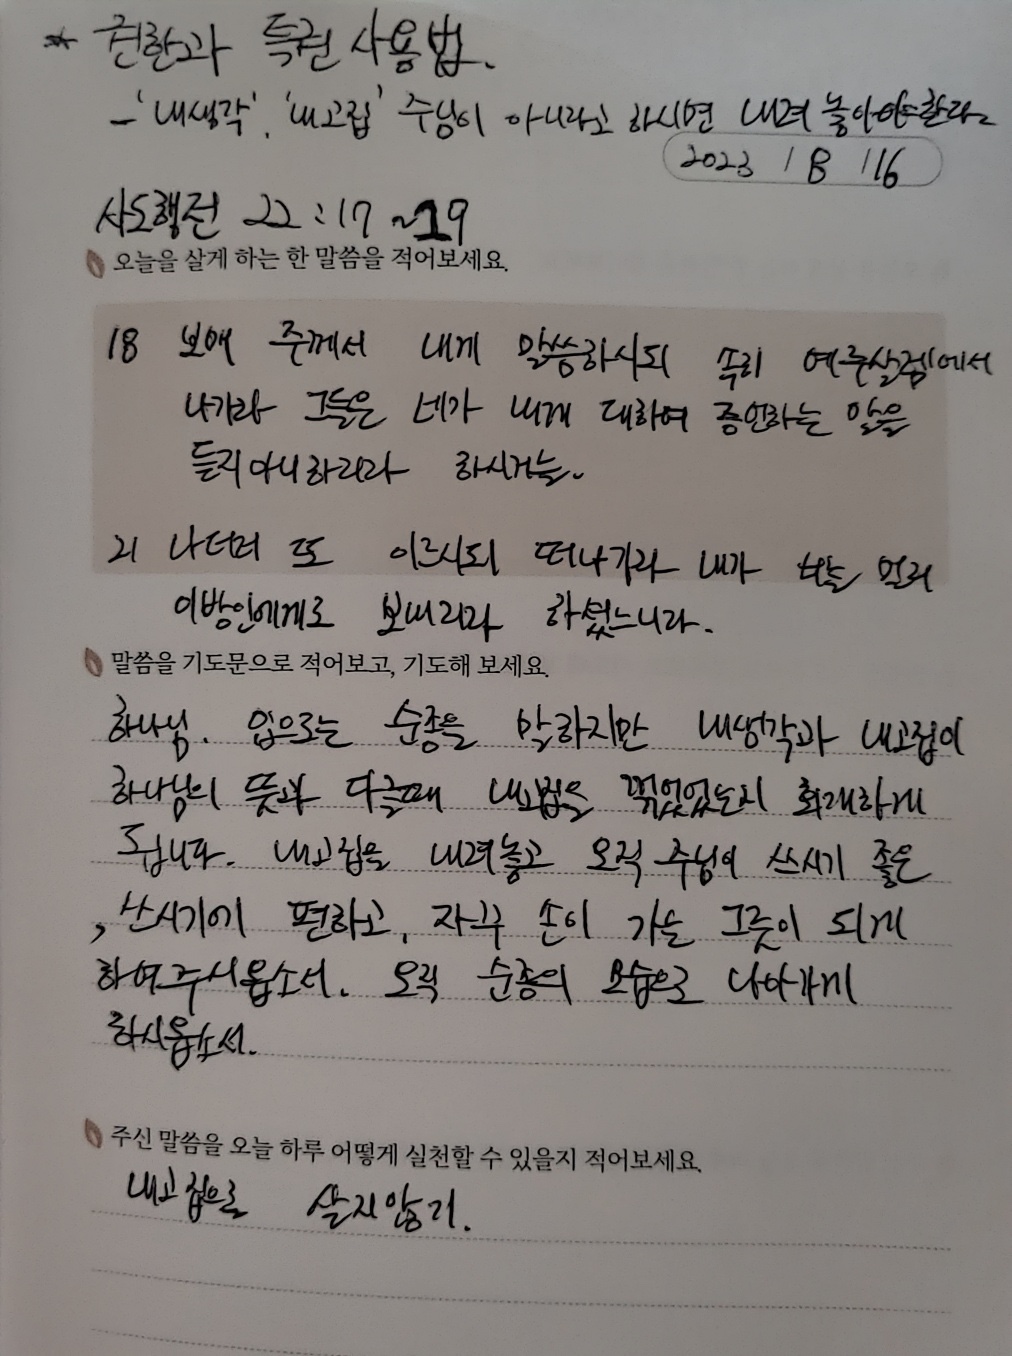 * 권한과 특권 사용법.
- '내생각', '내고집' 주님이 아니라고 하시면 내려 놓아야한다.
2023 / 8 / 16
사도행전 22:17~19
오늘을 살게 하는 한 말씀을 적어보세요.
18 보매 주께서 내게 말씀하시되 속히 예루살렘에서
나가라 그들은 네가 내게 대하여 증언하는 말을
듣지아니하리라 하시거늘.
21 나더러 또 이르시되 떠나가라 내가 너를 멀리
이방인에게로 보내리라 하셨느니라.
말씀을 기도문으로 적어보고, 기도해 보세요.
하나님. 입으로는 순종을 말하지만 내생각과 내고집이
하나님의 뜻과 다를때 내고집을 꺾었었는지 회개하게
됩니다. 내고집을 내려놓고 오직 주님이 쓰시기 좋은
, 쓰시기에 편하고, 자꾸 손이 가는 그릇이 되게
하여주시옵소서. 오직 순종의 모습으로 나아가게
하시옵소서.
주신 말씀을 오늘 하루 어떻게 실천할 수 있을지 적어보세요.
내고집으로 살지않기.